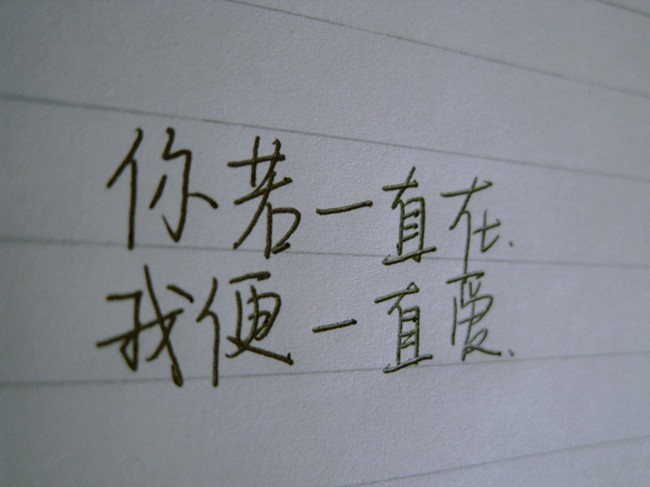 你若一直在.
我便一直爱.